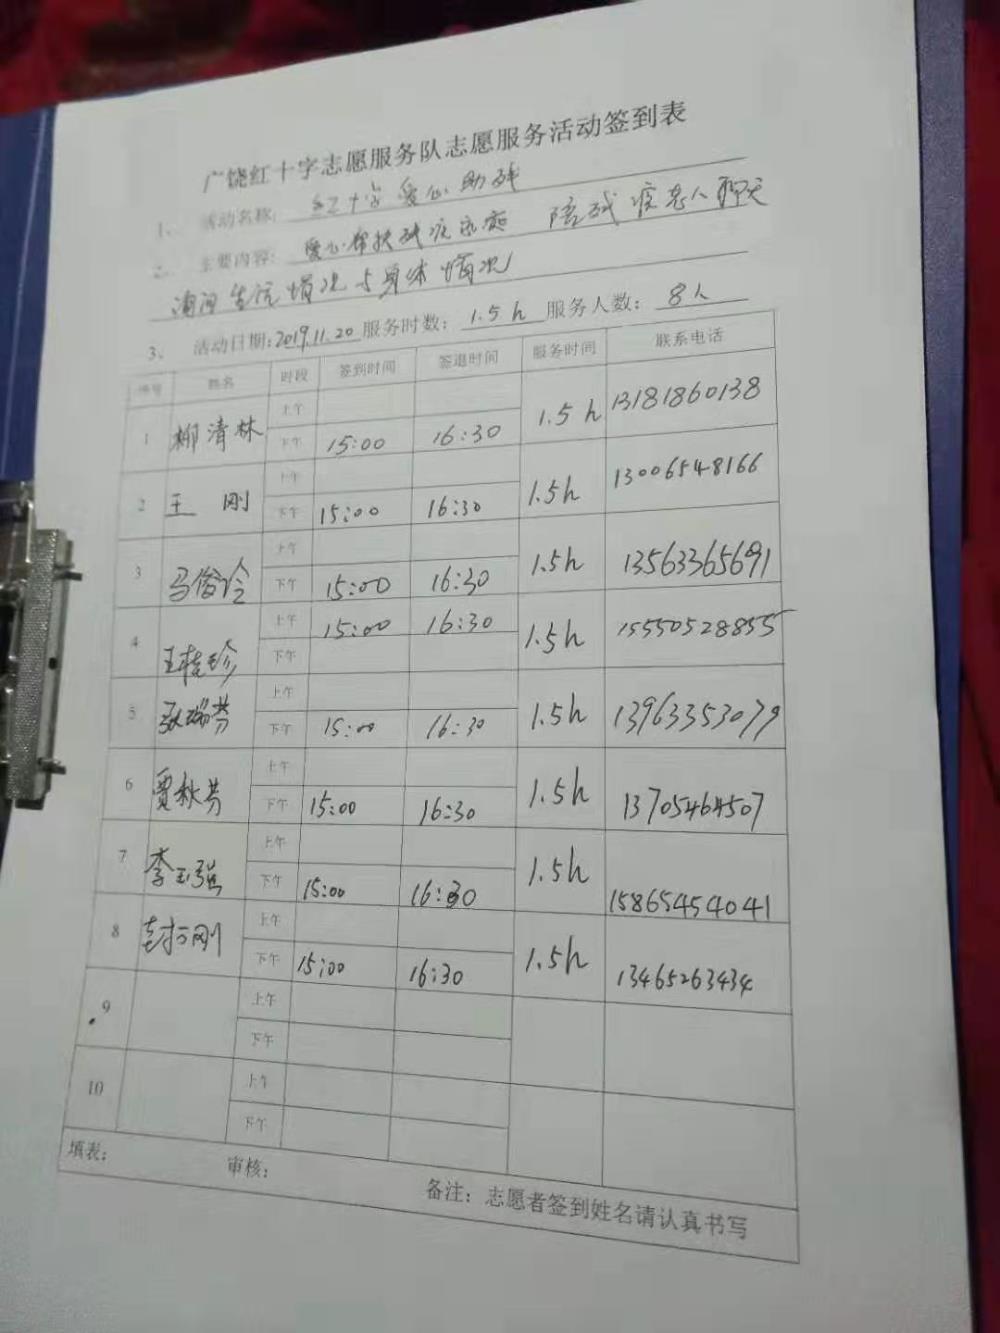 广饶红十字志愿服务队志愿服务活动签到表
1、 活动名称: 红十字爱心助残
2、 主要内容: 爱心帮扶残疾家庭 陪残疾老人聊天
询问生活情况与身体情况
3、 活动日期:2019.11.20 服务时数: 1.5h 服务人数: 8人
编号 姓名 时段 签到时间 签退时间 服务时间 联系电话
1 柳清林 上午 1.5h 13181860138
下午 15:00 16:30
2 王刚 上午 1.5h 13006548166
下午 15:00 16:30
3 马俊玲 上午 1.5h 13563365691
下午 15:00 16:30
4 王桂珍 上午 15:00 16:30 1.5h 15550528855
下午
5 张瑞芳 上午 1.5h 13963353079
下午 15:00 16:30
6 贾秋芳 上午 1.5h 13705464507
下午 15:00 16:30
7 李玉强 上午 1.5h 15865454041
下午 15:00 16:30
8 刚 上午 1.5h 13465263434
下午 15:00 16:30
9 上午
下午
10 上午
下午
填表: 审核: 备注:志愿者签到姓名请认真书写